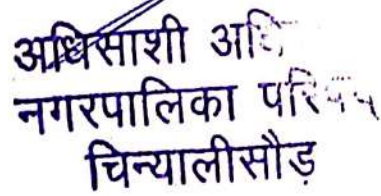 अधिसाशी
नगरपालिका
चिन्यालीसौड़